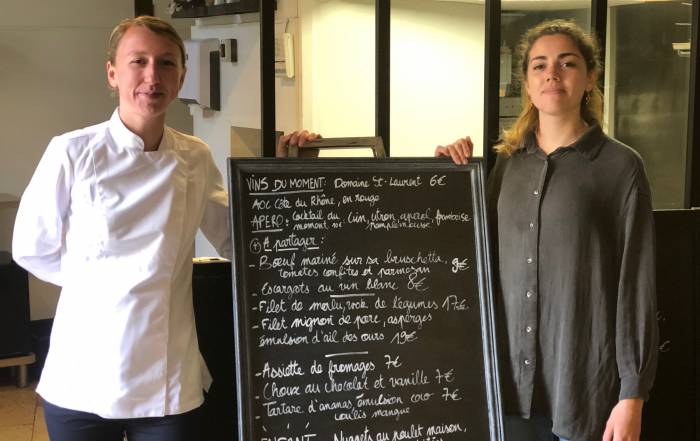 VINS DU MOMENT: DOMAINE ST-LAURENT 6€
AOC CÔTE DU RHÔNE, EN ROUGE
APERO: Cocktail du
moment,
à partager:
- Boeuf mariné sur sa bruschetta,
tomates confites et parmesan 9€
- Escargots au vin blanc 8€
- Filet de merlu, wok de légumes 17€
- Filet mignon de porc, asperges
émulsion d'ail des ours 19€
- Assiette de fromages 7€
- Choux au chocolat et vanille 7€
- Tartare d'ananas, émulsion coco 7€
coulis mangue
ENFANT Nuggets au poulet maison,